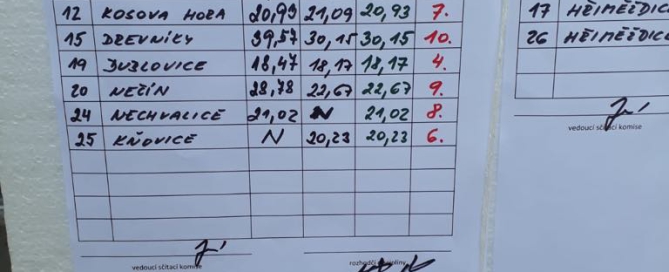 12 KOSOVA HORA 20,93 21,09 20,93 7.
15 DREVNÍKY 39,57 30,15 30,15 10.
19 DUBLOVICE 18,47 18,17 18,17 4.
20 NEČÍN 28,78 22,67 22,67 9.
24 NECHVALICE 21,02 N 21,02 8.
25 KŇOVICE N 20,23 20,23 6.
vedoucí sčítací komise
17
26
vedoucí sčítací komise